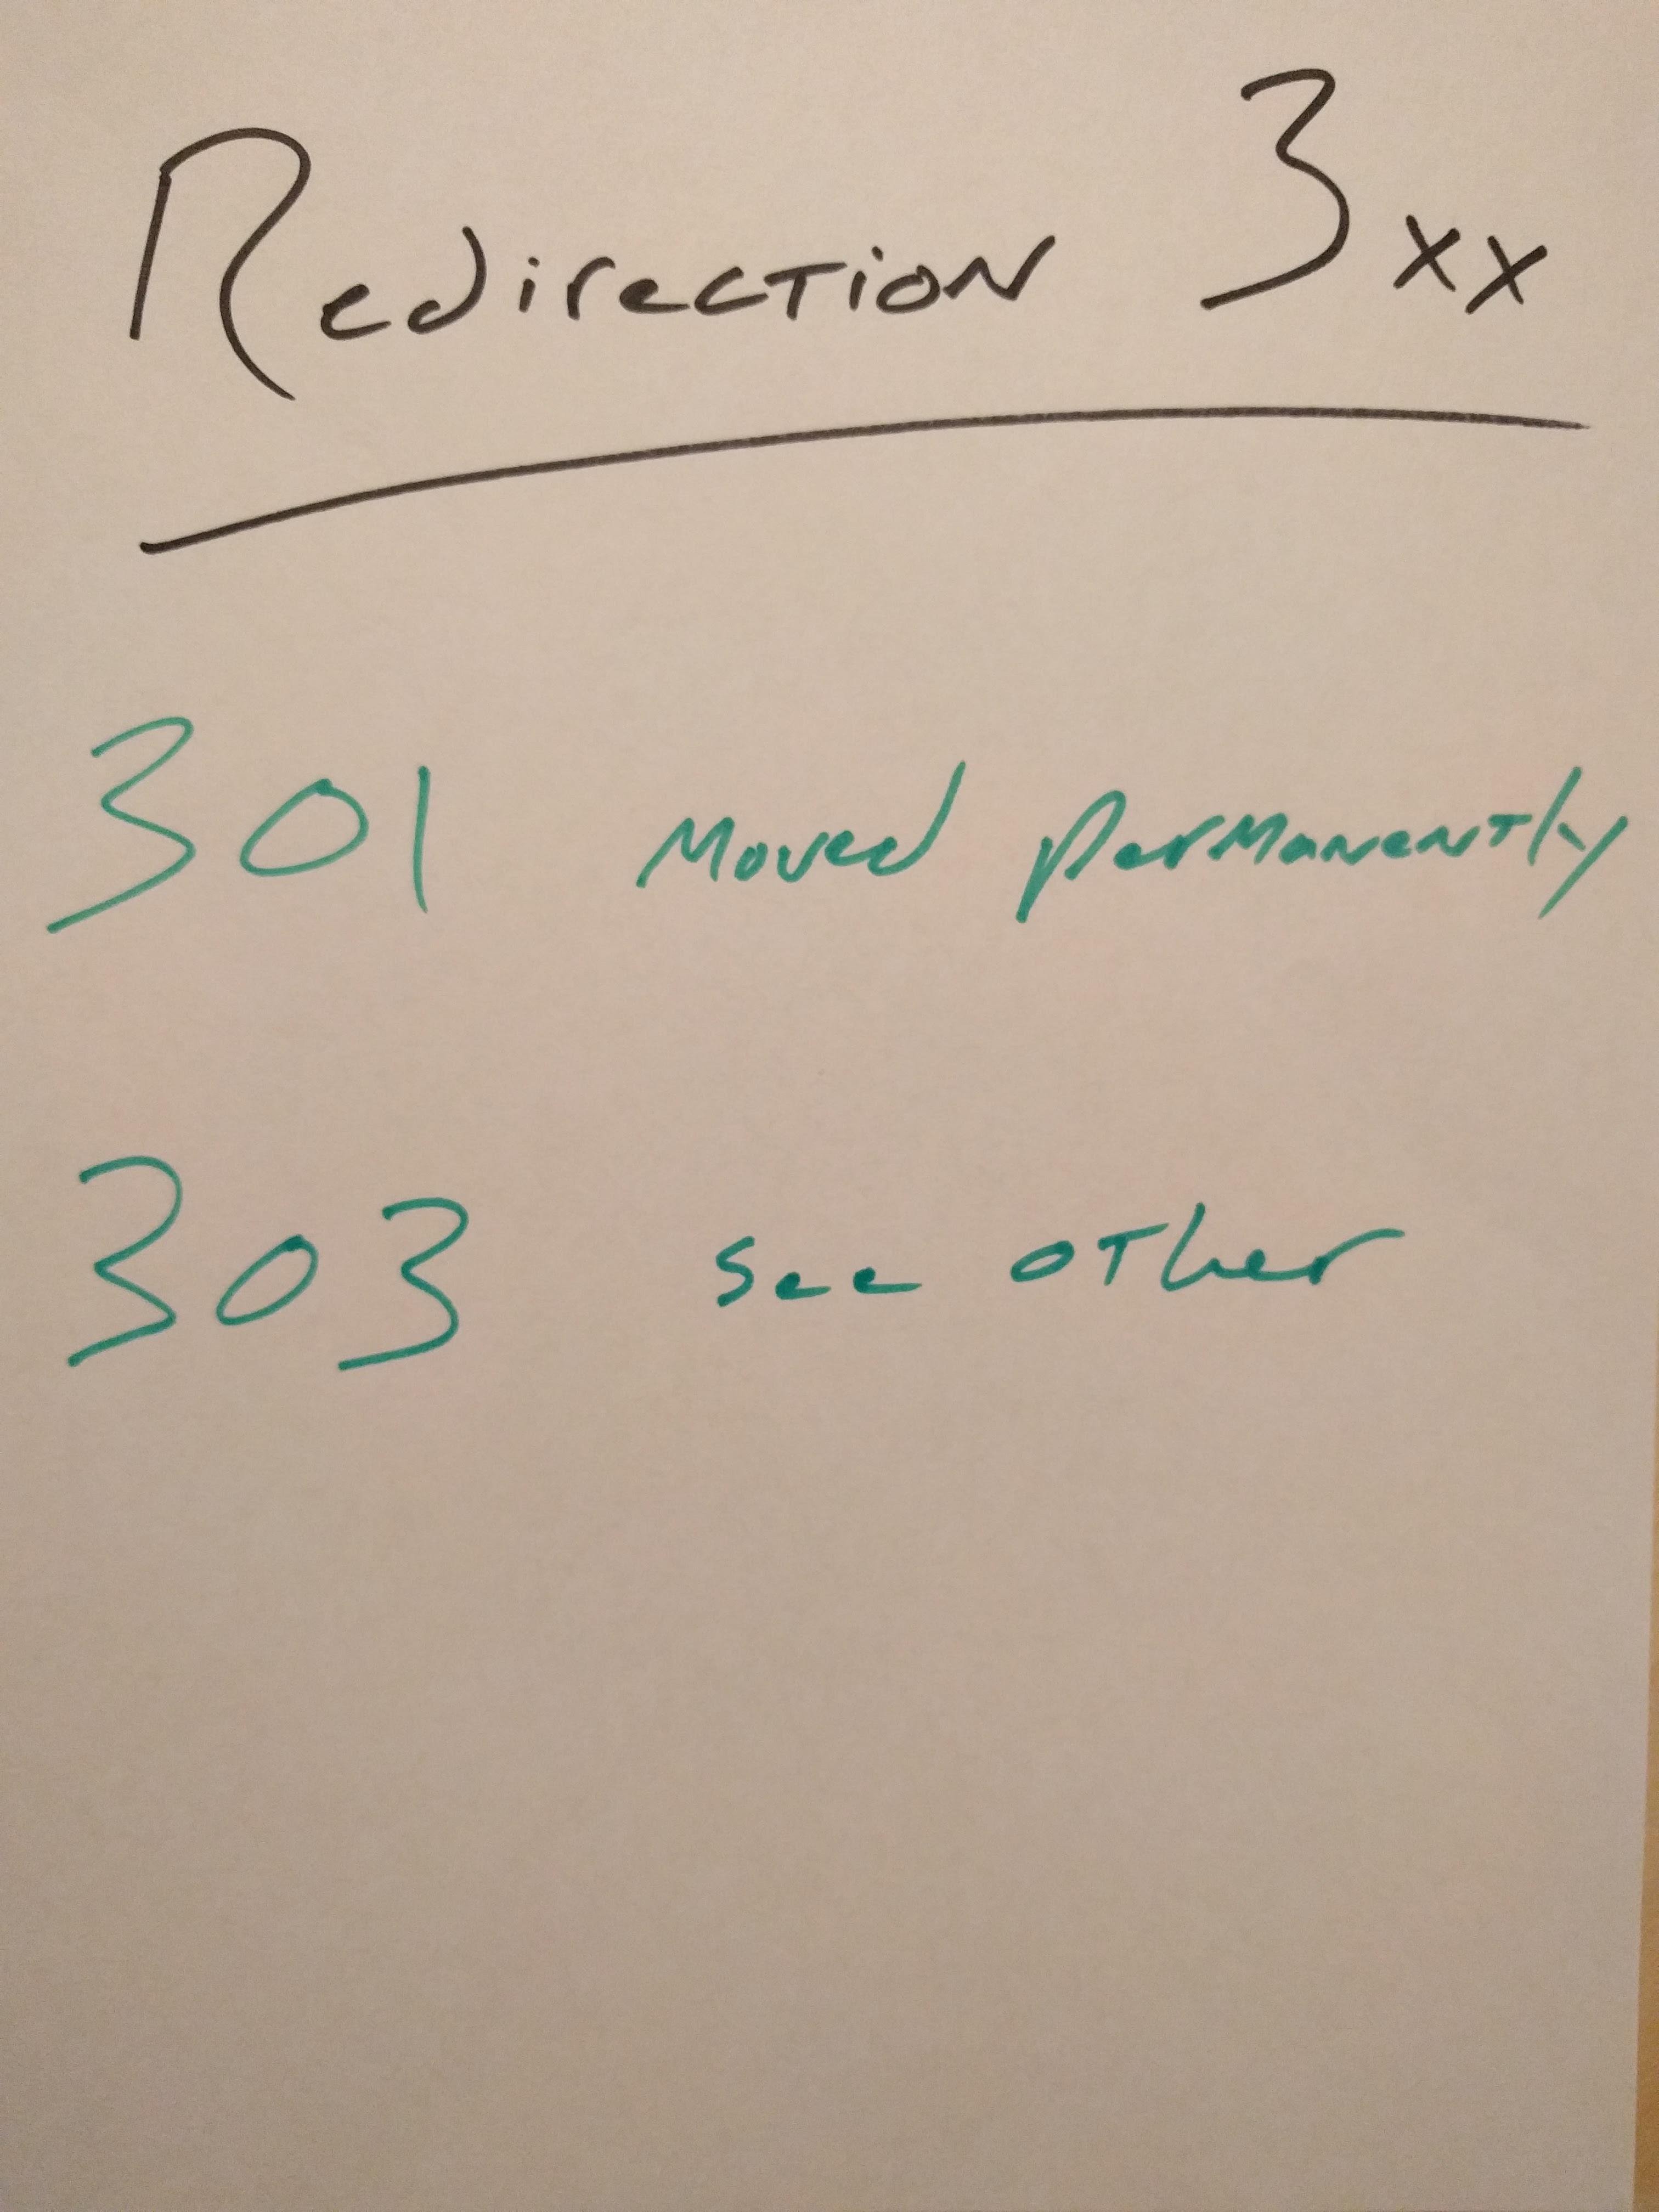 Redirection 3xx
301 Moved permanently
303 see other